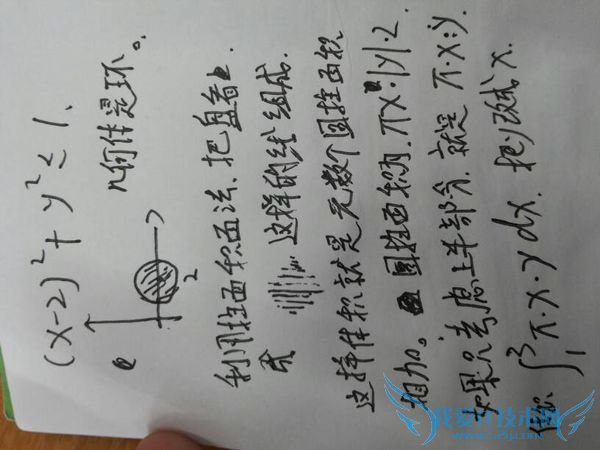 (x-2)²+y²≤1.
几何体是环。
2
利用柱面积面法.把盘看
成 这样的线组成.
这样体积就是无数个圆柱面积
相加。圆柱面积为.πx·|y|·2.
如果只考虑上半部分.就是π·x·y.
∫₁³π·x·y dx.把y换成x.